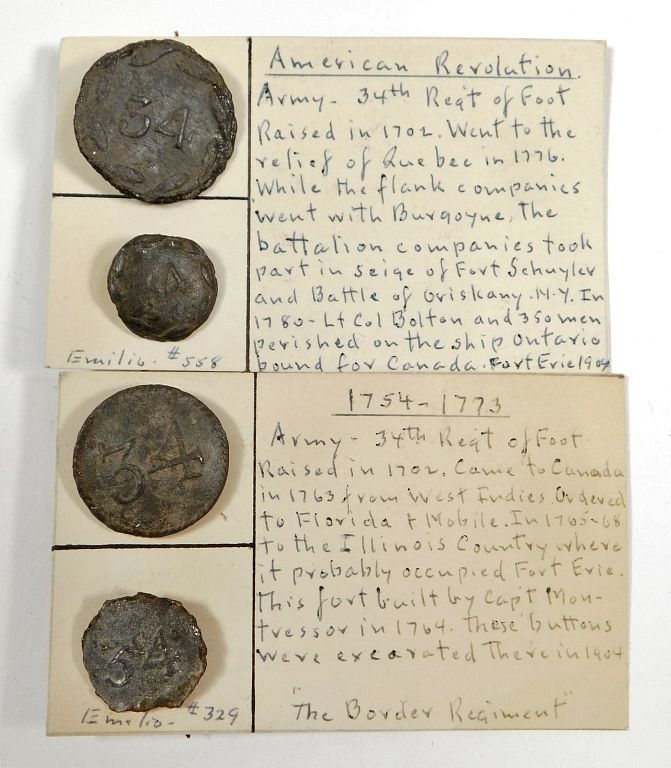 34
34
American Revolution.
Army - 34th Reg't of Foot
Raised in 1702. Went to the
relief of Quebec in 1776.
While the flank companies
went with Burgoyne, the
battalion companies took
part in seige of Fort Schuyler
and Battle of Oriskany. N.Y. In
1780 - Lt Col Bolton and 350 men
perished on the ship Ontario
bound for Canada. Fort Erie 1904
Emilio. #558
34
34
1754-1773
Army - 34th Reg't of Foot
Raised in 1702. Came to Canada
in 1763 from West Indies. Ordered
to Florida & Mobile. In 1765-68
to the Illinois Country where
it probably occupied Fort Erie.
This fort built by Capt Mon-
tressor in 1764. These buttons
were excavated There in 1904
"The Border Regiment"
Emilio - #329